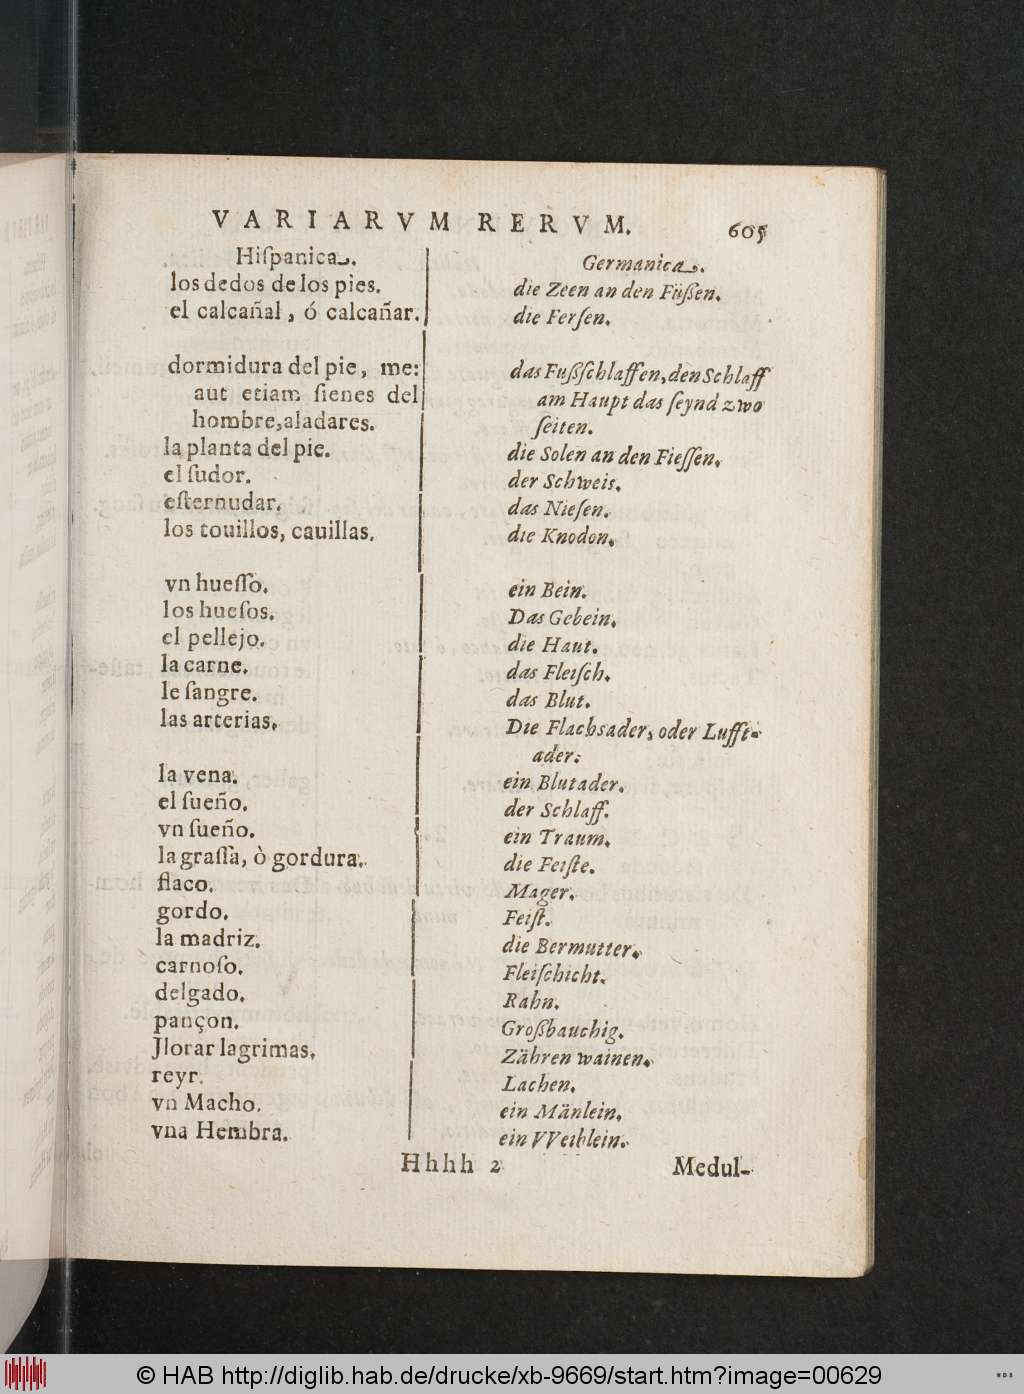 VARIARVM RERVM. 605
Hiſpanica.
los dedos de los pies.
el calcañal, ó calcañar.
dormidura del pie, me:
aut etiam ſienes del
hombre, aladares.
la planta del pie.
el ſudor.
eſternudar.
los touillos, cauillas.
vn hueſſo.
los hueſos.
el pellejo.
la carne.
le ſangre.
las arterias.
la vena.
el ſueño.
vn ſueño.
la graſſa, ò gordura.
flaco.
gordo.
la madriz.
carnoſo.
delgado.
pançon.
Jlorar lagrimas.
reyr.
vn Macho.
vna Hembra.
Germanica.
die Zeen an den Füßen.
die Ferſen.
das Fußſchlaffen, den Schlaff
am Haupt das ſeynd zwo
ſeiten.
die Solen an den Fieſſen.
der Schweis.
das Nieſen.
die Knodon.
ein Bein.
Das Gebein.
die Haut.
das Fleiſch.
das Blut.
Die Flachsader, oder Lufft-
ader.
ein Blutader.
der Schlaff.
ein Traum.
die Feiſte.
Mager.
Feiſt.
die Bermutter.
Fleiſchicht.
Rahn.
Großbauchig.
Zähren wainen.
Lachen.
ein Mänlein.
ein VVeiblein.
Hhhh 2 Medul-
© HAB http://diglib.hab.de/drucke/xb-9669/start.htm?image=00629